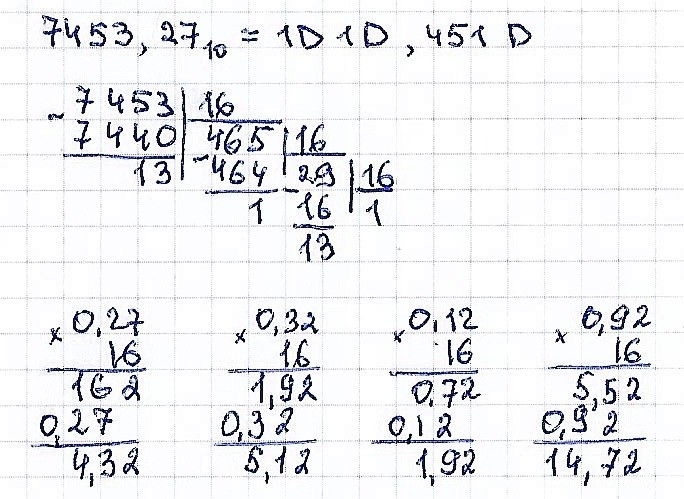 7453,27₁₀ = 1D1D,451D
- 7453 | 16
7440 | 465 | 16
13 - 464 - 29 | 16
1 16 1
13
× 0,27 × 0,32 × 0,12 × 0,92
16 16 16 16
162 1,92 0,72 5,52
0,27 0,32 0,12 0,92
4,32 5,12 1,92 14,72